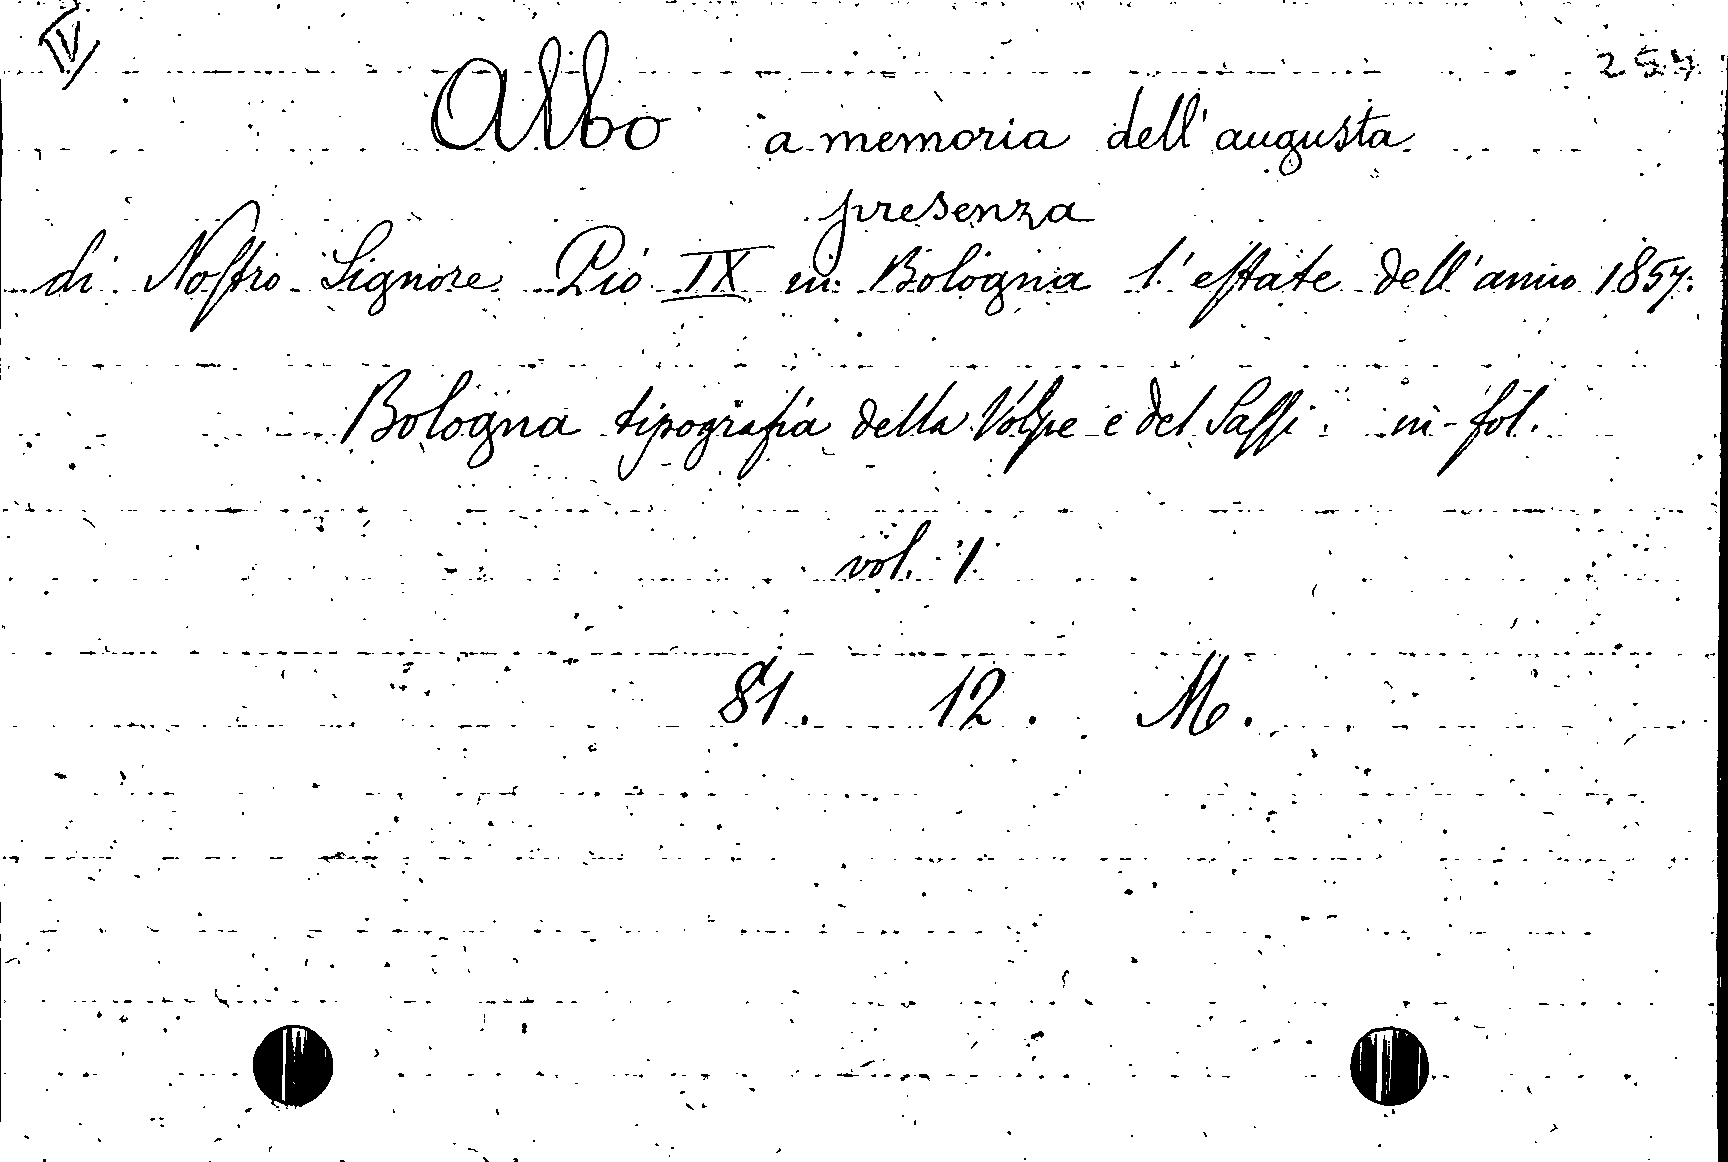 IV
254
Albo a memoria dell'augusta
presenza
di Nostro Signore Pio IX in Bologna l'estate dell'anno 1857.
Bologna tipografia della Volpe e del Sassi. in-fol.
vol. 1
81. 12. M.